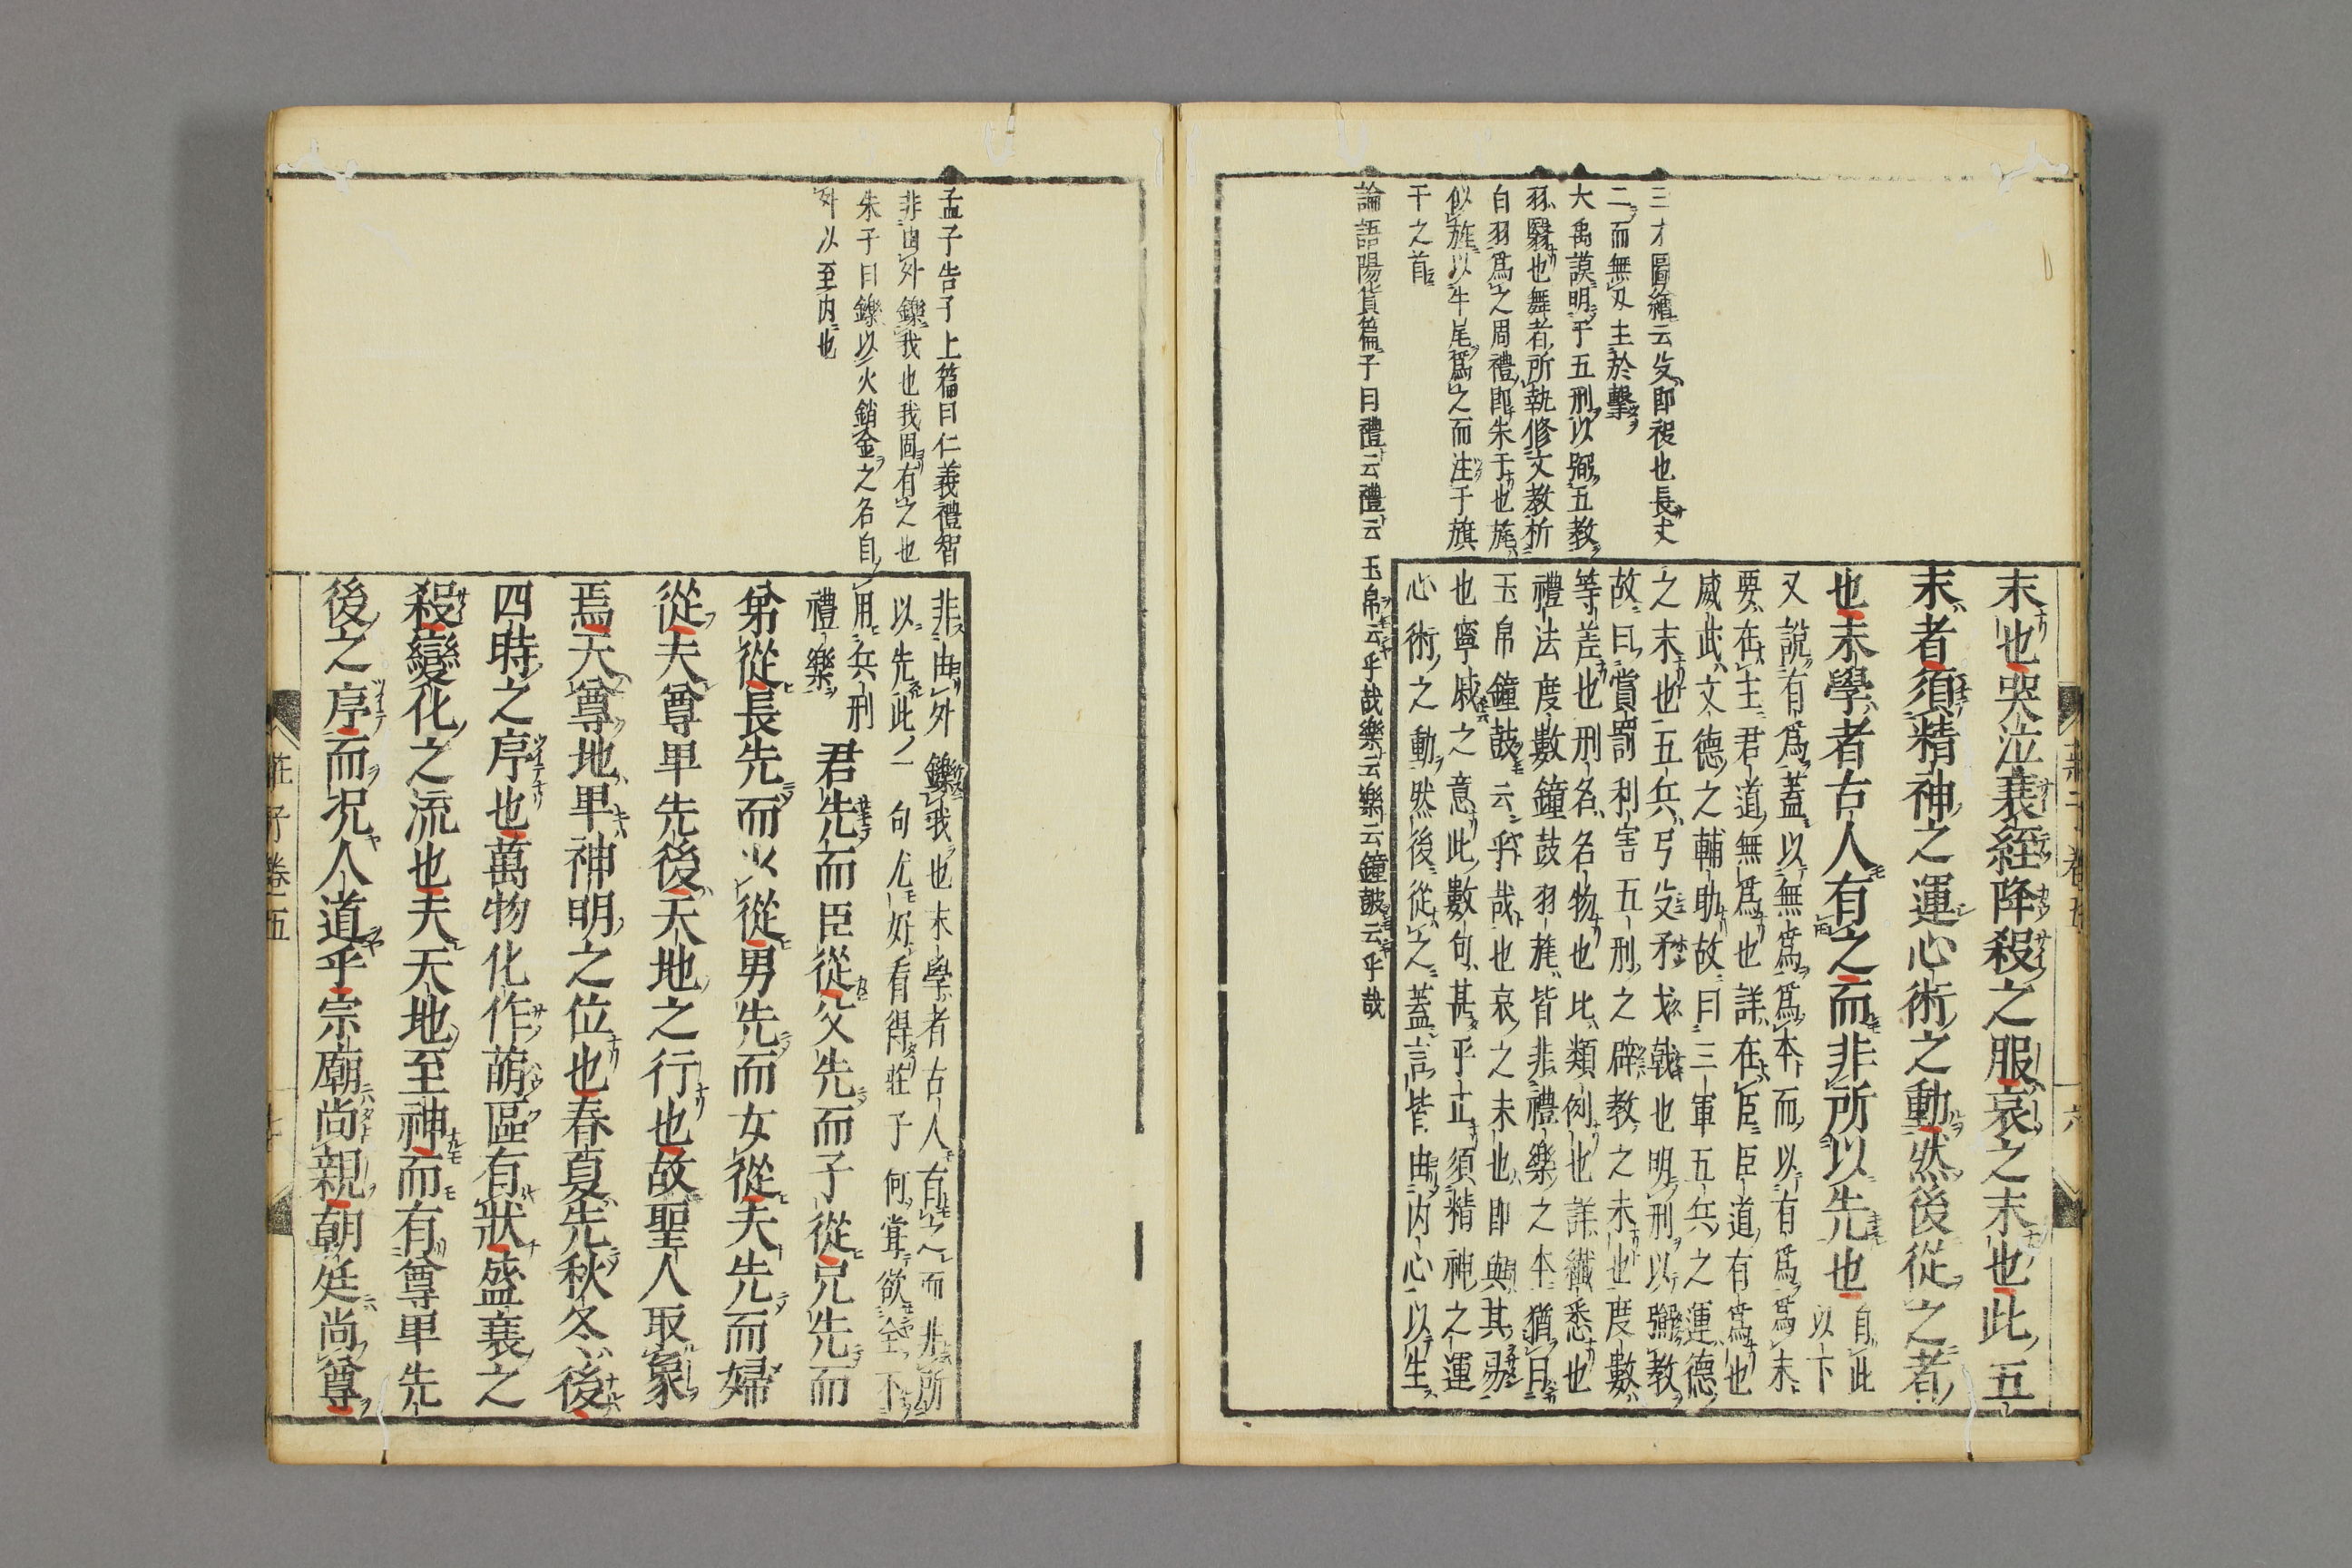 三才圖繪云殳即祋也長丈
二而無刃主於擊
大禹謨明于五刑以弼五教
羽翳也舞者所執修文教析
白羽爲之周禮即朱干也旄
似旌以牛尾爲之而注于旗
干之首
論語陽貨篇子曰禮云禮云玉帛云乎哉樂云樂云鐘皷云乎哉
末也哭泣衰絰降殺之服哀之末也此五
末者須精神之運心術之動然後從之者
也末學者古人有之而非所以先也自此
以下
又說有爲蓋以無爲爲本而以有爲爲末
要在主君道無爲也詳在臣臣道有爲也
威武文德之輔助故曰三軍五兵之運德
之末也五兵弓殳矛戈戟也明刑以弼教
故曰賞罰利害五刑之辟教之末也度數
等差也刑名名物也比類例也詳纖悉也
禮法度數鐘鼓羽旄皆非禮樂之本猶曰
玉帛鐘鼓云乎哉也哀之末也即與其易
也寧戚之意此數句甚乎正須精神之運
心術之動然後從之蓋言皆由内心以生
莊子卷五
十六
孟子告子上篇曰仁義禮智
非由外鑠我也我固有之也
朱子曰鑠以火銷金之名自
外以至内也
非由外鑠我也末學者古人有之而非所
以先此一句尤好看得莊子何嘗欲全不
用兵刑
禮樂
君先而臣從父先而子從兄先而
弟從長先而少從男先而女從夫先而婦
從夫尊卑先後天地之行也故聖人取象
焉天尊地卑神明之位也春夏先秋冬後
四時之序也萬物化作萌區有狀盛衰之
殺變化之流也夫天地至神而有尊卑先
後之序而况人道乎宗廟尚親朝廷尚尊
莊子卷五
十七